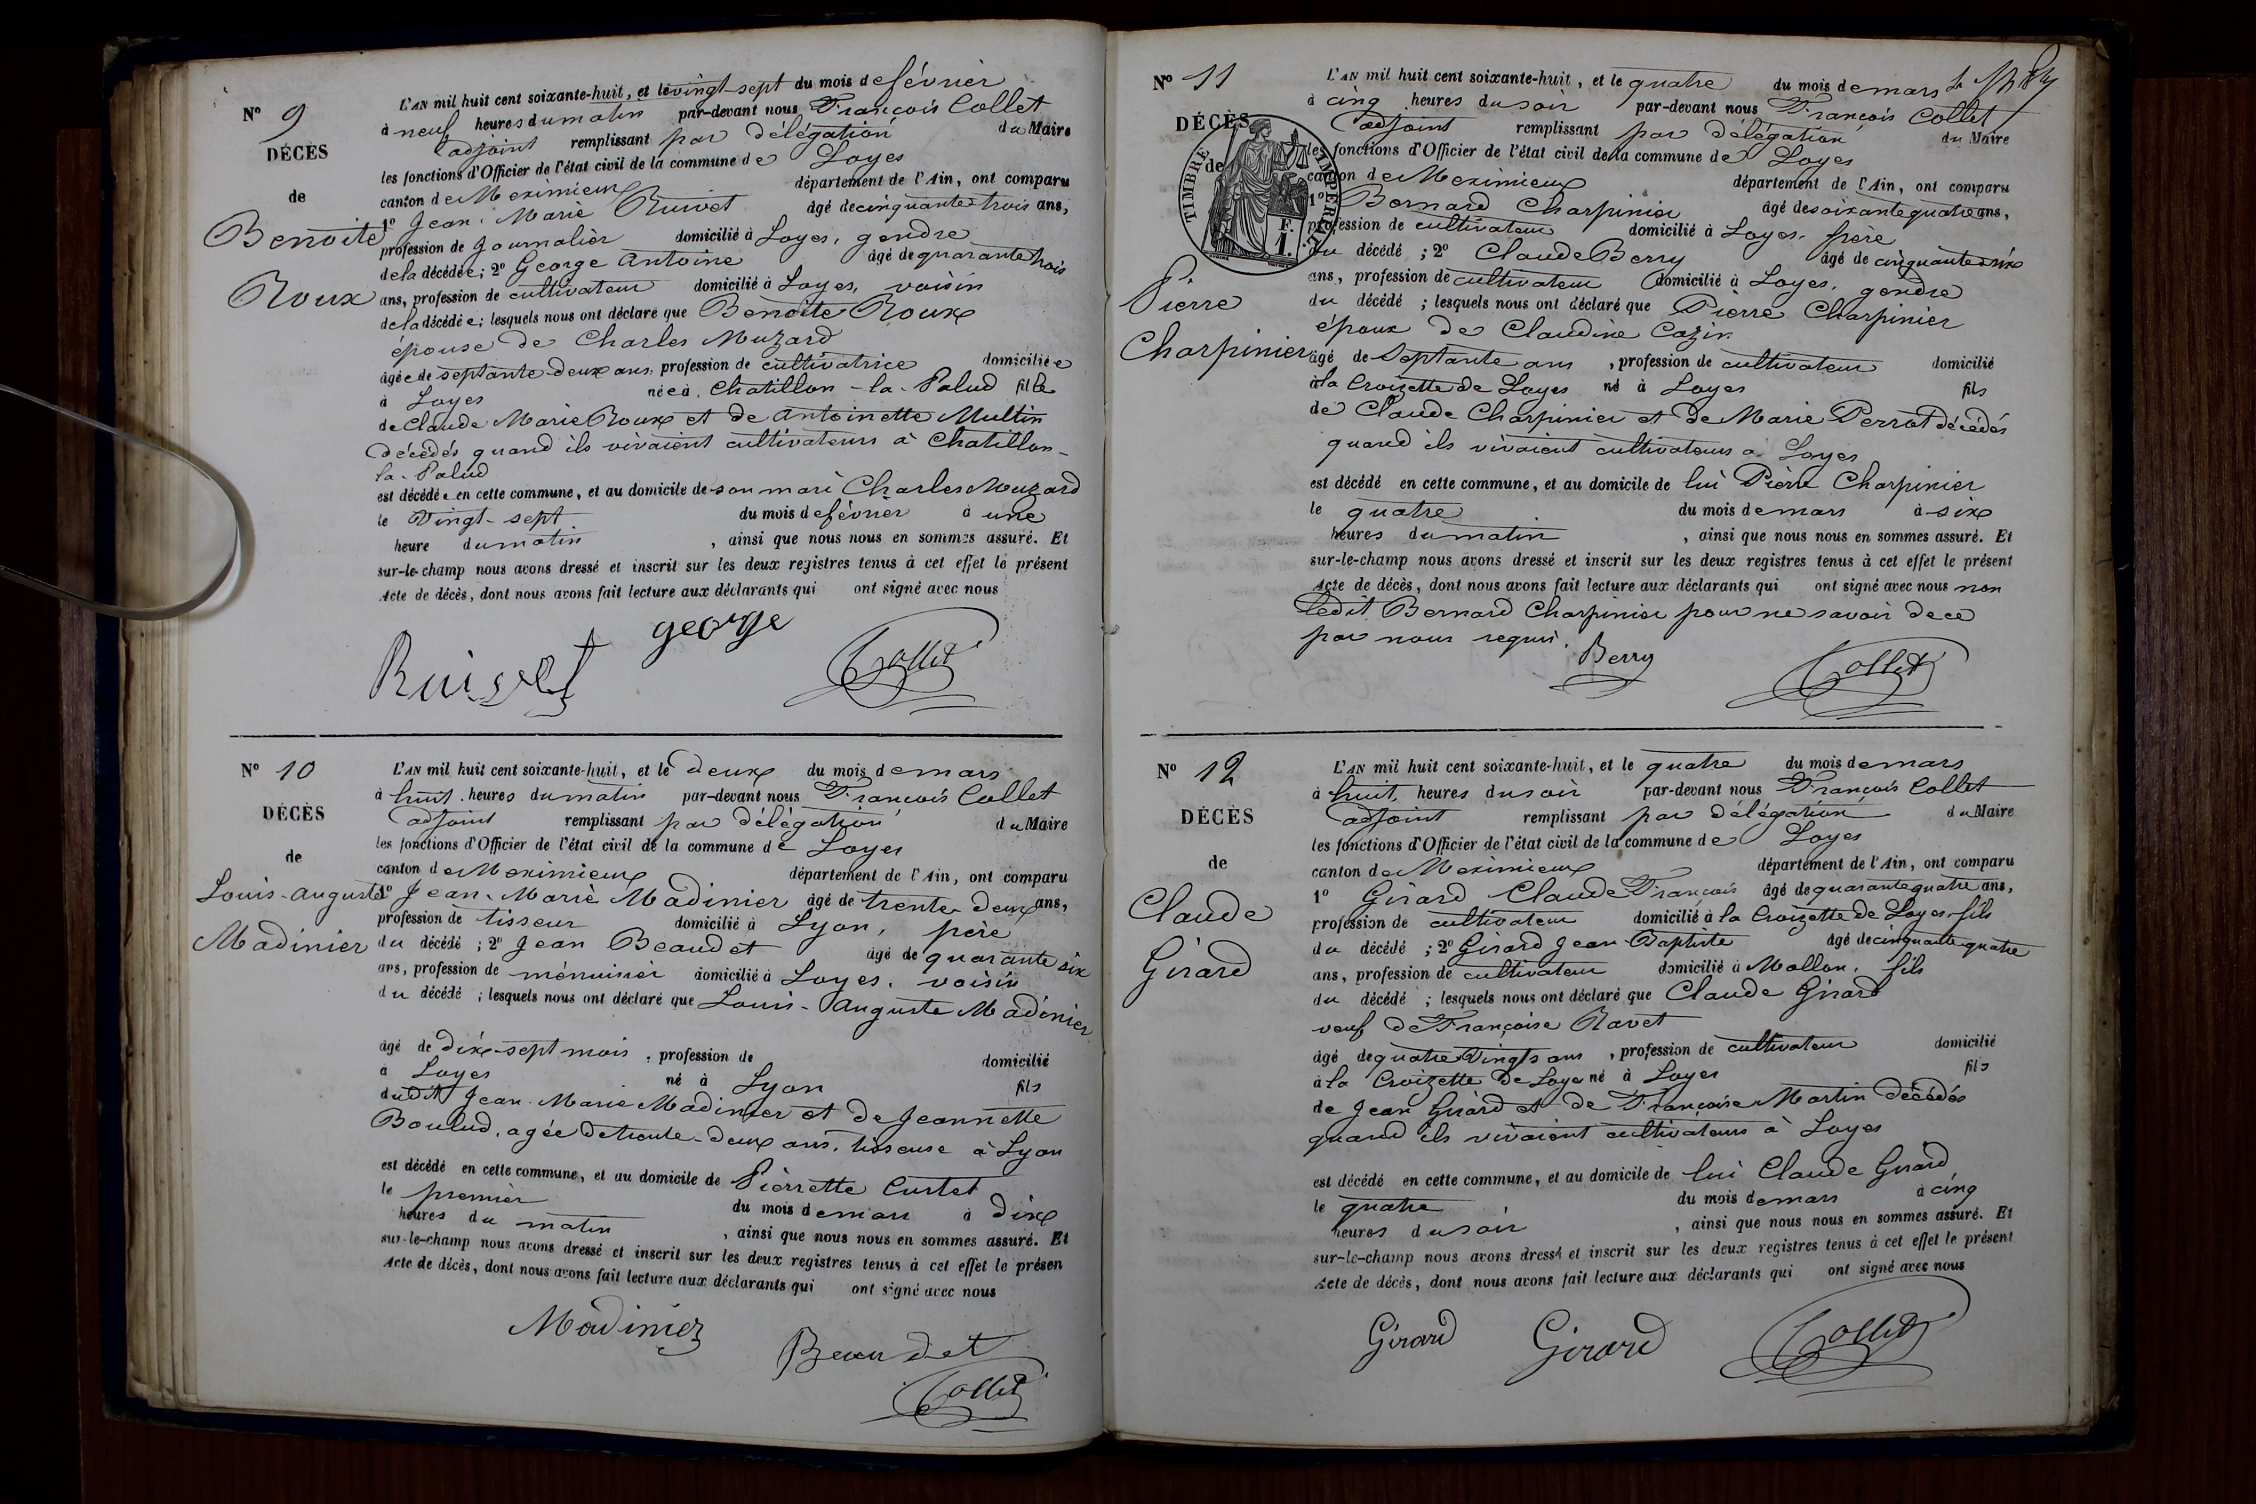 N° 9
DÉCÈS
de
Benoite
Roux
L'AN mil huit cent soixante-huit, et le vingt-sept du mois de février
à neuf heures du matin par-devant nous François Collet
adjoint remplissant par délégation du Maire
les fonctions d'Officier de l'état civil de la commune de Loyes
canton de Meximieux département de l'Ain, ont comparu
1° Jean-Marie Ruivet âgé de cinquante trois ans,
profession de journalier domicilié à Loyes, gendre
de la décédée; 2° George Antoine âgé de quarante trois
ans, profession de cultivateur domicilié à Loyes, voisin
de la décédée; lesquels nous ont déclaré que Benoite Roux
épouse de Charles Muzard
âgée de septante-deux ans, profession de cultivatrice domiciliée
à Loyes née à Chatillon-la-Palud fille
de Claude Marie Roux et de Antoinette Multin
décédés quand ils vivaient cultivateurs à Chatillon-
la-Palud
est décédée en cette commune, et au domicile de son mari Charles Muzard
le vingt-sept du mois de février à une
heure du matin, ainsi que nous nous en sommes assuré. Et
sur-le-champ nous avons dressé et inscrit sur les deux registres tenus à cet effet le présent
Acte de décès, dont nous avons fait lecture aux déclarants qui ont signé avec nous
Ruivet george Collet
N° 10
DÉCÈS
de
Louis-Auguste
Madinier
L'AN mil huit cent soixante-huit, et le deux du mois de mars
à huit heures du matin par-devant nous François Collet
adjoint remplissant par délégation du Maire
les fonctions d'Officier de l'état civil de la commune de Loyes
canton de Meximieux département de l'Ain, ont comparu
1° Jean-Marie Madinier âgé de trente-deux ans,
profession de tisseur domicilié à Lyon, père
du décédé; 2° Jean Beaudet âgé de quarante six
ans, profession de menuisier domicilié à Loyes, voisin
du décédé; lesquels nous ont déclaré que Louis-Auguste Madinier
âgé de dix-sept mois, profession de domicilié
à Loyes né à Lyon fils
dudit Jean-Marie Madinier et de Jeannette
Boulud, agée de trente-deux ans, tisseuse à Lyon
est décédé en cette commune, et au domicile de Pierrette Curtet
le premier du mois de mars à dix
heures du matin, ainsi que nous nous en sommes assuré. Et
sur-le-champ nous avons dressé et inscrit sur les deux registres tenus à cet effet le présen
Acte de décès, dont nous avons fait lecture aux déclarants qui ont signé avec nous
Madinier
Beaudet
Collet
N° 11
DÉCÈS
de
TIMBRE IMPÉRIAL
1 F.
Pierre
Charpinier
L'AN mil huit cent soixante-huit, et le quatre du mois de mars
à cinq heures du soir par-devant nous François Collet
adjoint remplissant par délégation du Maire
les fonctions d'Officier de l'état civil de la commune de Loyes
canton de Meximieux département de l'Ain, ont comparu
1° Bernard Charpinier âgé de soixante quatre ans,
profession de cultivateur domicilié à Loyes, frère
du décédé; 2° Claude Berry âgé de cinquante-six
ans, profession de cultivateur domicilié à Loyes, gendre
du décédé; lesquels nous ont déclaré que Pierre Charpinier
époux de Claudine Cazin
âgé de septante ans, profession de cultivateur domicilié
à la Croizette de Loyes né à Loyes fils
de Claude Charpinier et de Marie Perrot décédés
quand ils vivaient cultivateurs à Loyes
est décédé en cette commune, et au domicile de lui Pierre Charpinier
le quatre du mois de mars à six
heures du matin, ainsi que nous nous en sommes assuré. Et
sur-le-champ nous avons dressé et inscrit sur les deux registres tenus à cet effet le présent
Acte de décès, dont nous avons fait lecture aux déclarants qui ont signé avec nous non
ledit Bernard Charpinier pour ne savoir de ce
par nous requis.
Berry Collet
N° 12
DÉCÈS
de
Claude
Girard
L'AN mil huit cent soixante-huit, et le quatre du mois de mars
à huit heures du soir par-devant nous François Collet
adjoint remplissant par délégation du Maire
les fonctions d'Officier de l'état civil de la commune de Loyes
canton de Meximieux département de l'Ain, ont comparu
1° Girard Claude François âgé de quarante quatre ans,
profession de cultivateur domicilié à la Croizette de Loyes, fils
du décédé; 2° Girard Jean-Baptiste âgé de cinquante quatre
ans, profession de cultivateur domicilié à Mollon, fils
du décédé; lesquels nous ont déclaré que Claude Girard
veuf de Françoise Ravet
âgé de quatre vingts ans, profession de cultivateur domicilié
à la Croizette de Loyes né à Loyes fils
de Jean Girard et de Françoise Martin décédés
quand ils vivaient cultivateurs à Loyes
est décédé en cette commune, et au domicile de lui Claude Girard
le quatre du mois de mars à cinq
heures du soir, ainsi que nous nous en sommes assuré. Et
sur-le-champ nous avons dressé et inscrit sur les deux registres tenus à cet effet le présent
Acte de décès, dont nous avons fait lecture aux déclarants qui ont signé avec nous
Girard Girard Collet